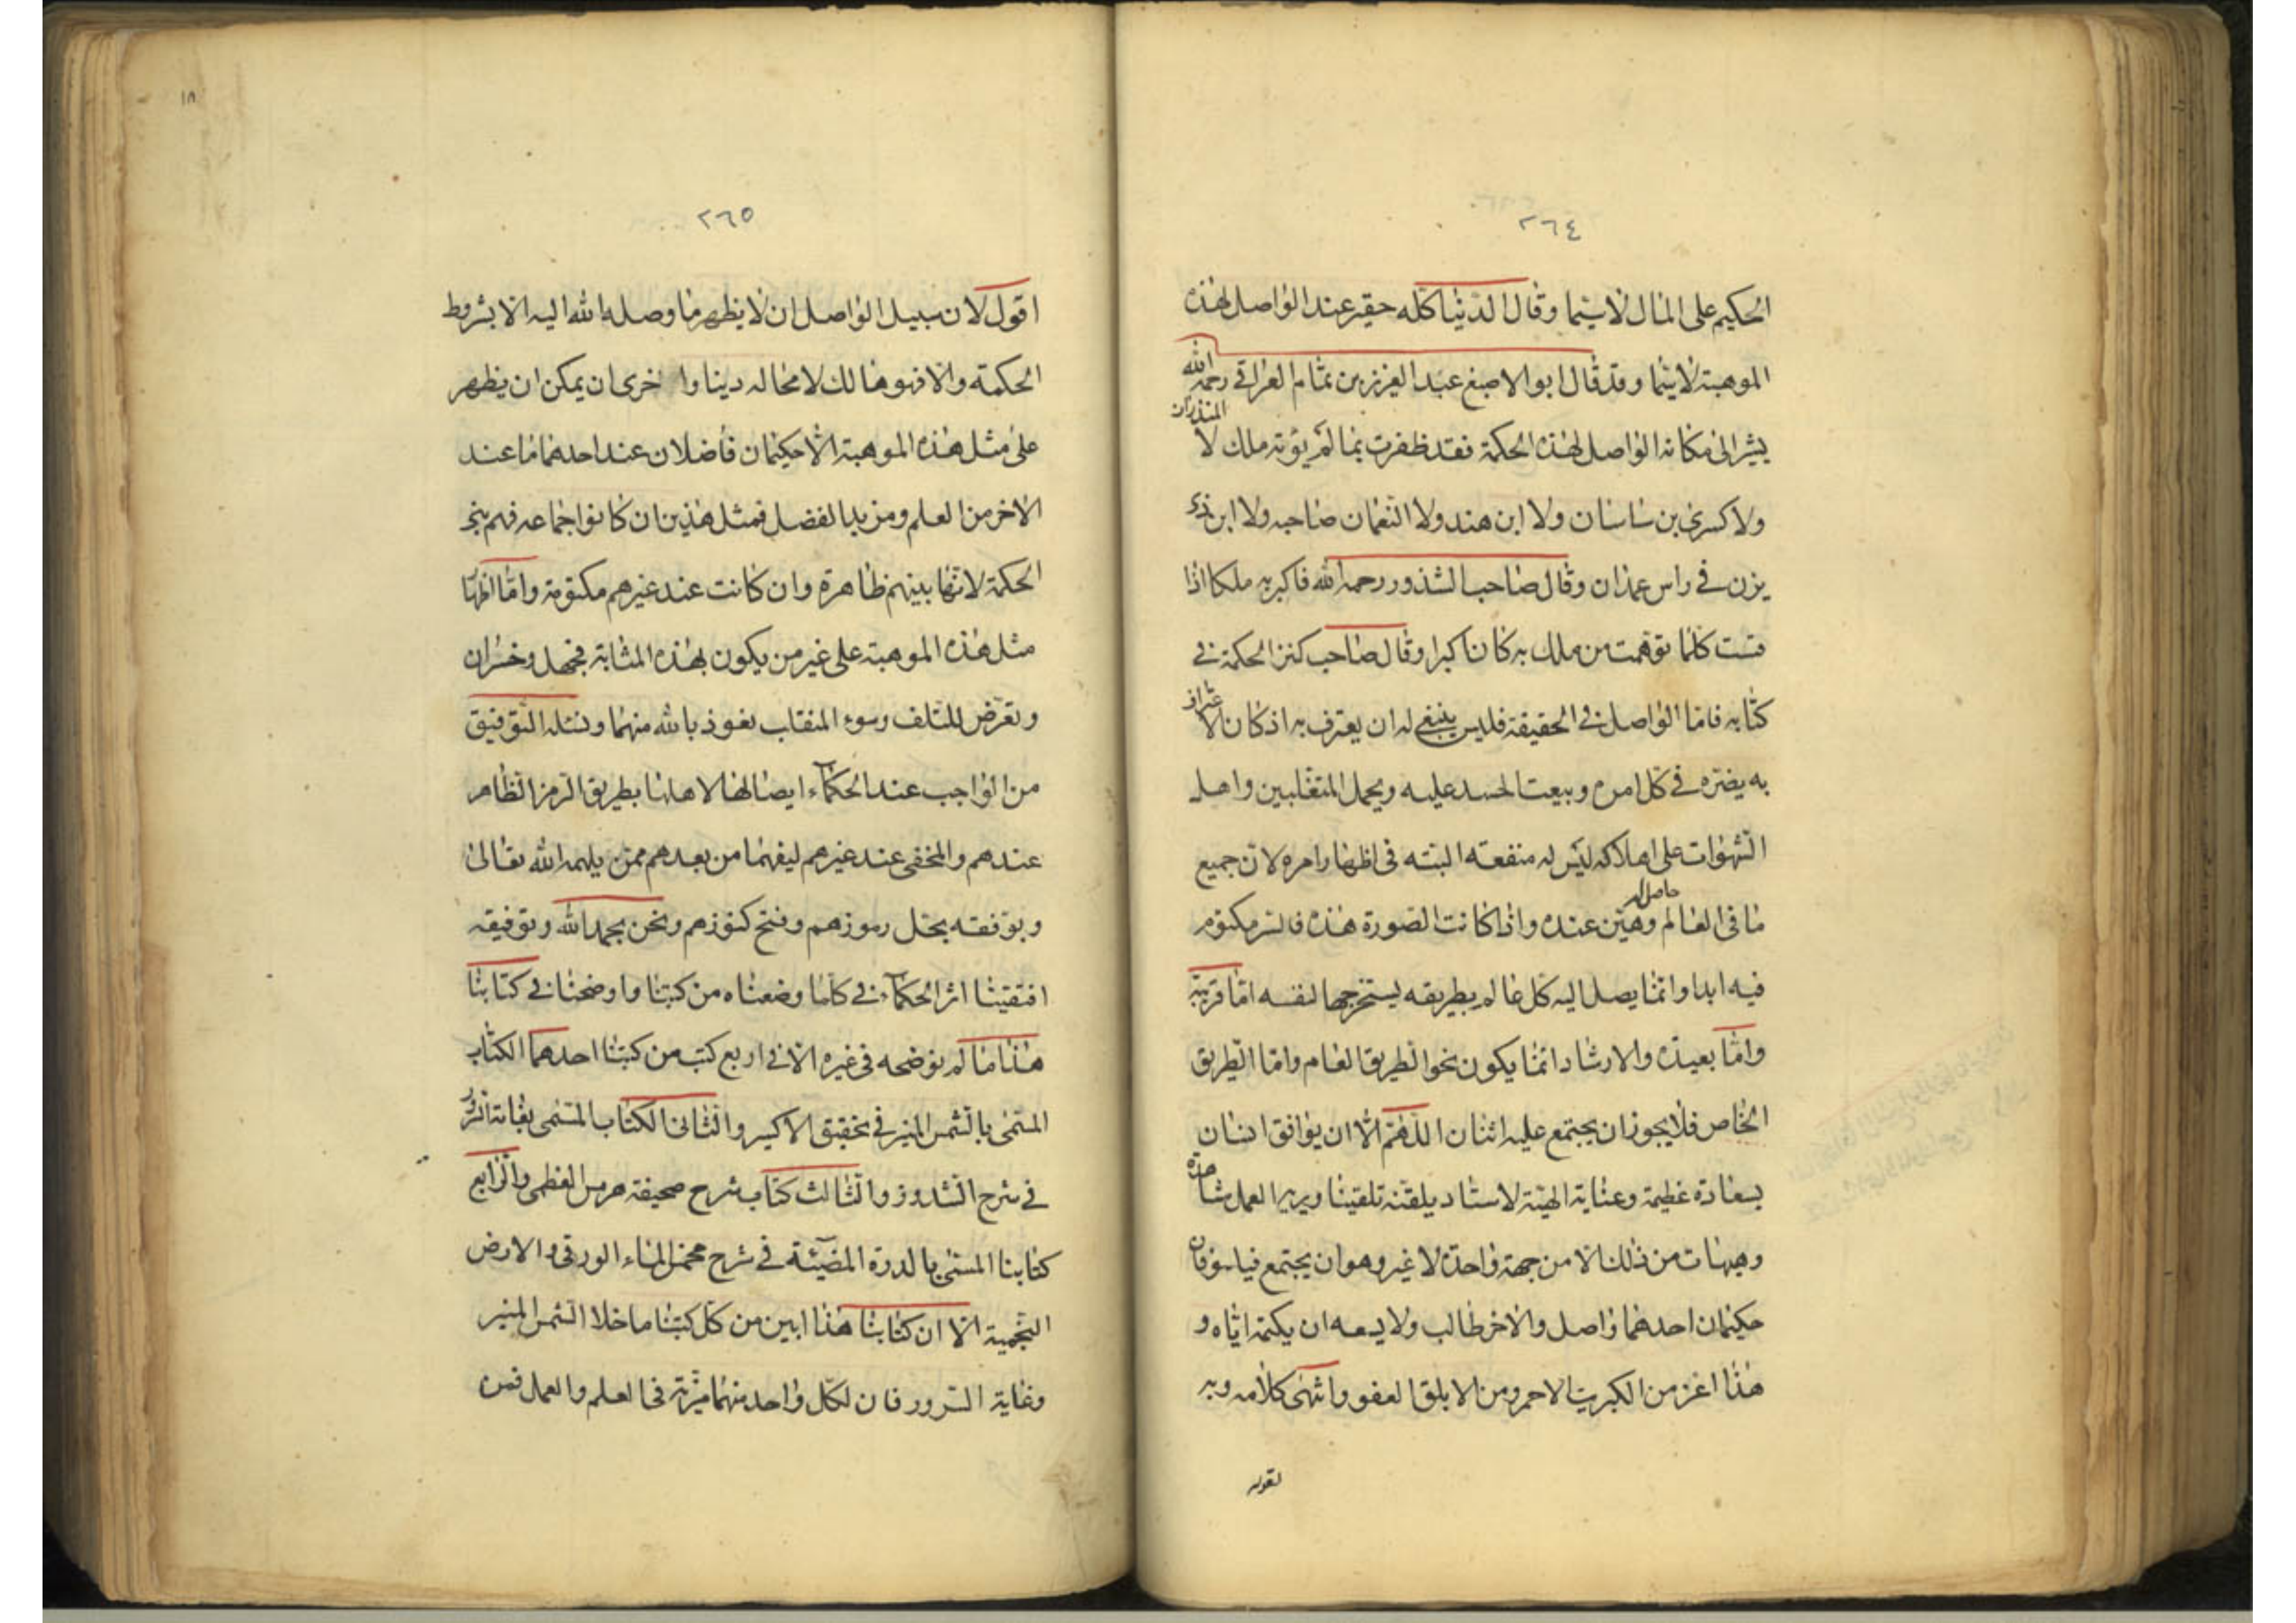 ٢٦٤
الحكيم على المال لاسيما وقال الدنيا كله حقير عند الواصل لهذه
الموهبة لاسيما وقد قال ابو الاصبغ عبد العزيز بن تمام العراقي رحمه الله
يشير الى مكانة الواصل لهذه الحكمة فقد ظفرت بما لم يؤته ملك لا المنذران
ولا كسرى بن ساسان ولا ابن هند ولا النعمان صاحبه ولا ابن ذي
يزن في راس غمدان وقال صاحب الشذور رحمه الله فاكبر به ملكا اذا
قست كلما توهمت من ملك به كان اكبرا وقال صاحب كنز الحكمة في
كتابه فاما الواصل في الحقيقة فليس ينبغي له ان يعترف به اذ كان الاعتراف
به يضره في كل امره ويبعث الحسد عليه ويحمل المتغلبين واهل
الشهوات على اهلاكه ليس له منفعة البتة في اظهار امره لان جميع
ما في العالم حاصل له وهين عنده واذا كانت الصورة هذه فالسر مكتوم
فيه ابدا وانما يصل اليه كل عالم بطريقه يستخرجها لنفسه اما قريبة
واما بعيدة والارشاد انما يكون نحو الطريق العام واما الطريق
الخاص فلا يجوز ان يجتمع عليه اثنان اللهم الا ان يوافق انسان
بسعادة عظيمة وعناية الهية لاستاد يلقنه تلقينا ويريه العمل مشاهدة
وهيهات من ذلك الا من جهة واحدة لا غير وهو ان يجتمع فيلسوفان
حكيمان احدهما واصل والاخر طالب ولا يسعه ان يكتمه اياه و
هذا اعز من الكبريت الاحمر ومن الابلق العقوق وانتهى كلامه وبه
لقوله
١٨
٢٦٥
اقول لان سبيل الواصل ان لا يظهر ما وصله الله اليه الا بشروط
الحكمة والا فهو هالك لا محالة دينا واخرى ان يمكن ان يظهر
على مثل هذه الموهبة الا حكيمان فاضلان عند احدهما ما عند
الاخر من العلم ومزيد الفضل فمثل هذين ان كانوا جماعة فهم
الحكمة لانها بينهم ظاهرة وان كانت عند غيرهم مكتومة واما اظهار
مثل هذه الموهبة على غير من يكون بهذه المثابة فجهل وخسران
وتعرض للتلف وسوء المنقلب نعوذ بالله منهما ونسئله التوفيق
من الواجب عند الحكماء ايصالها لاهلها بطريق الرمز الظاهر
عندهم والمخفي عند غيرهم ليفهما من بعدهم ممن يلهمه الله تعالى
وبوفقه بحل رموزهم وفتح كنوزهم ونحن بحمد الله وتوفيقه
اقتفينا اثر الحكماء في كلما وضعناه من كتبنا واوضحنا في كتابنا
هذا ما لم نوضحه في غيره الا في اربع كتب من كتبنا احدهما الكتاب
المسمى بالشمس المنير في تحقيق الاكسير والثاني الكتاب المسمى بغاية السرور
في شرح الشذور والثالث كتاب شرح صحيفة هرمس العظمى والرابع
كتابنا المسمى بالدرة المضيئة في شرح مخمس الماء الورقي والارض
النجمية الا ان كتابنا هذا ابين من كل كتبنا ما خلا الشمس المنير
وغاية السرور فان لكل واحد منهما ميزة في العلم والعمل فمن